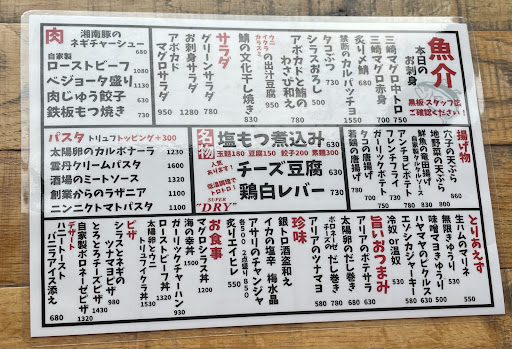 魚介
本日の
お刺身
黒板・スタッフに
ご確認ください！
三崎マグロ中トロ
三崎マグロ赤身
炙り〆鯖 630
禁断のカルパッチョ 1550
タコぶつ 730
シラスおろし 500
アボカドと鮪の
わさび和え
ウニ
イクラの出汁豆腐 950
カラスミ
鯖の文化干し焼き 830
サラダ
グリーンサラダ 780
お刺身サラダ 1280
アボカド
マグロサラダ 950
肉
湘南豚の
ネギチャーシュー 680
自家製
ローストビーフ 1080
ベジョータ盛り 1130
肉じゅう餃子 630
鉄板もつ焼き 730
揚げ物
穴子の天ぷら
地野菜の天ぷら
鮮魚の竜田揚げ
アンチョビポテト
アレンチェティ
ガーリックポテト
タコの唐揚げ
若鶏の唐揚げ
名物
塩もつ煮込み 630
玉麺180 豆腐150 餃子200 素麺300
人気
あります！
チーズ豆腐 630
低温調理で
トロトロ！
鶏白レバー 730
SUPER
"DRY"
パスタ トリュフトッピング+300
太陽卵のカルボナーラ 1230
雲丹クリームパスタ 1600
酒場のミートソース 1320
創業からのラザニア 1100
ニンニクトマトパスタ 1100
とりあえず
生ハムのマリネ 550
無限きゅうり 500
味噌ママきゅうり 430
ハマケンのピクルス 530
アメリカンジャーキー 630
冷奴 or 温奴 580
旨いおつまみ
アリアのポテサラ 630
太陽卵のだし巻き 680
ボロネーゼの だし巻き 780
アリアのツナマヨ 580
珍味
銀トロ酒盗和え
イカの塩辛 梅水晶
アサリのチャンジャ
各500 2点盛り850
炙りエイヒレ 550
お食事
マグロシラス丼 1200
海の幸丼 1500
ガーリックチャーハン 930
ローストビーフ丼
太陽卵とウニ
トロイクラ丼 1530
ピザ
シラスとネギの
ツナマヨピザ 980
とろとろチーズピザ 1530
自家製ボロネーゼピザ 1430
デザート
ハニートースト
バニラアイス添え 680
1320